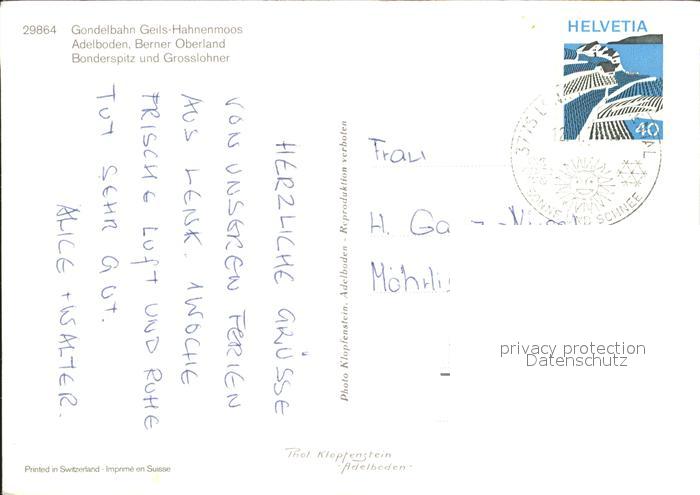 29864 Gondelbahn Geils-Hahnenmoos
Adelboden, Berner Oberland
Bonderspitz und Grosslohner
HERZLICHE GRÜSSE
VON UNSEREN FERIEN
AUS LENK. 1 WOCHE
FRISCHE LUFT UND RUHE
TUT SEHR GUT.
ALICE + WALTER.
Photo Klopfenstein, Adelboden - Reproduktion verboten
HELVETIA
40
3775
SONNE UND SCHNEE
Frau
H.
privacy protection
Datenschutz
Printed in Switzerland - Imprimé en Suisse
Phot Klopfenstein
-Adelboden-